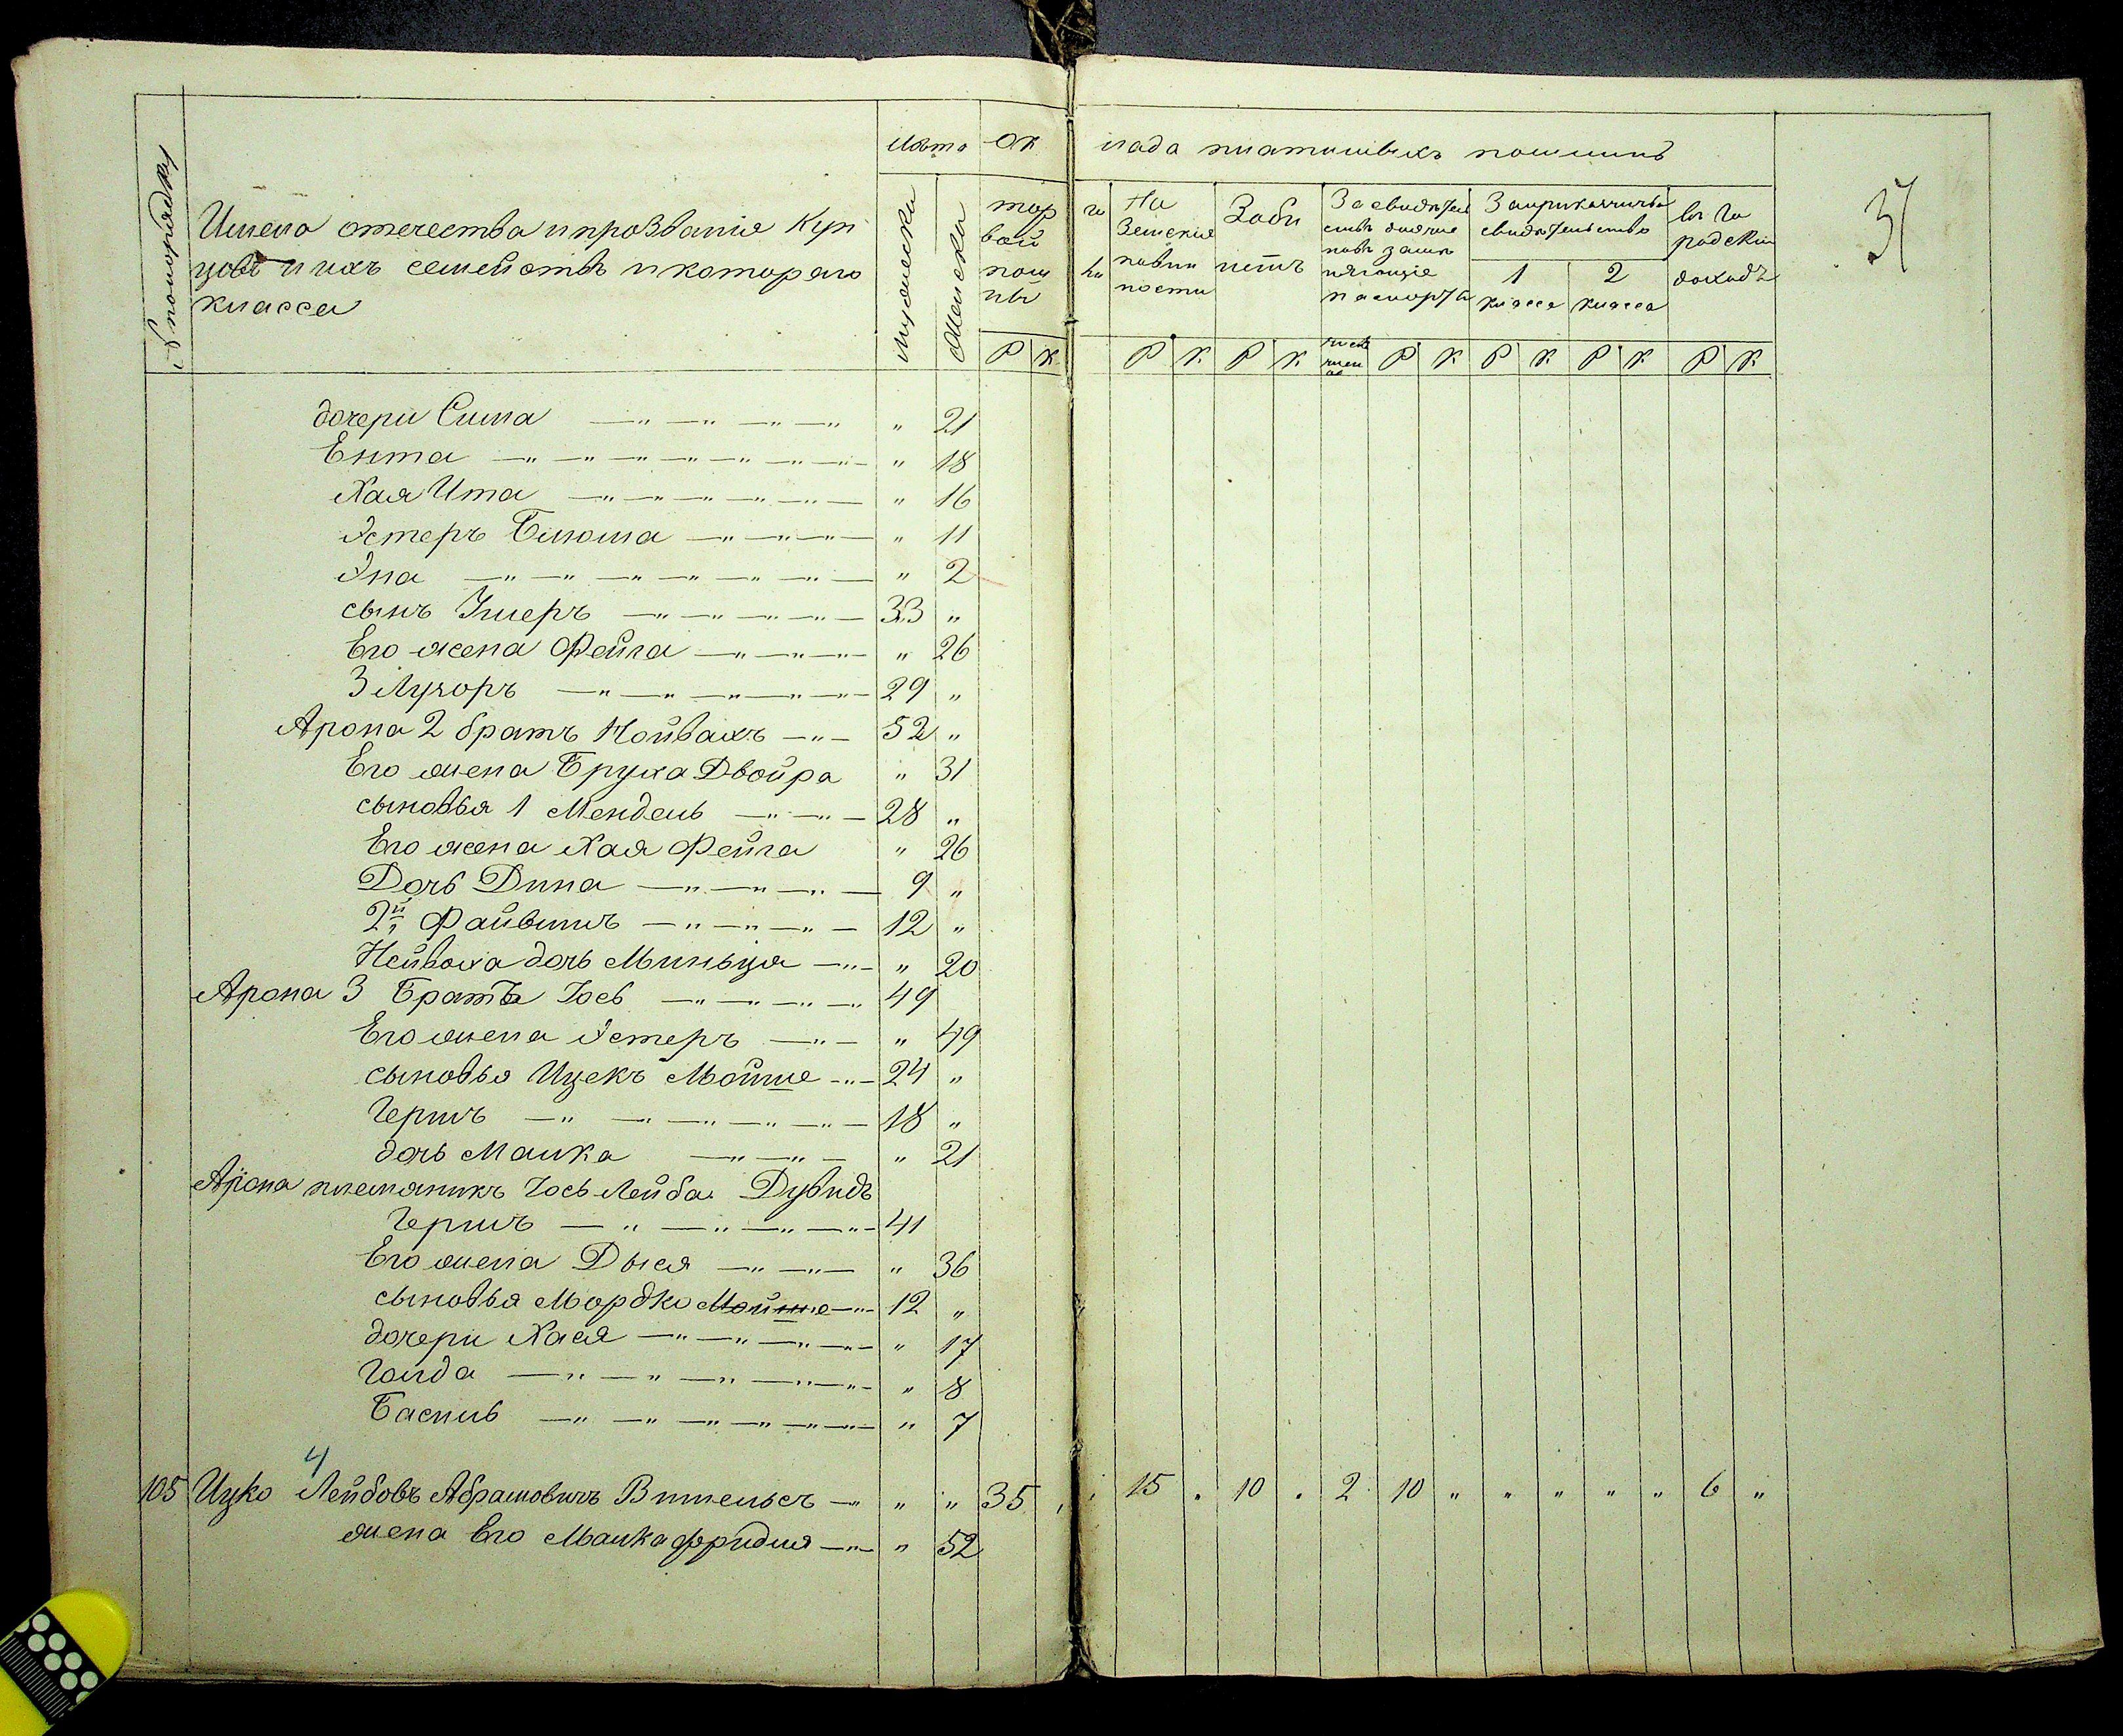 № по порядку
Имена отечества и прозвания Куп
цовъ и ихъ семействъ и котораго
класса
Лѣта
Мужески
Женски
Ок
лада платимыхъ пошлинъ
тор го
вой
пош
лы
Р К
На
Земския
повин
ности
Р К
Заби
летъ
Р К
За свидѣтель
паспорта
Р К
За прикащичьи
свидѣтельства
1
класса
Р К
2
класса
Р К
въ Го
родской
доходъ
Р К
37
дочери Сима — " — " — " — " " 21
Ента — " — " — " — " — " — " — " 18
Хая Ита — " — " — " — " — " — " 16
Эстеръ Блюма — " — " — " — " 11
Эна — " — " — " — " — " — " — " 2
сынъ Ушеръ — " — " — " — " — 33 "
Его жена Фейга — " — " — " — " 26
3 Лузоръ — " — " — " — " — " — 29 "
Арона 2 братъ Нойвахъ — " — 52 "
Его жена Бруха Двойра " 31
сыновья 1 Мендель — " — " — 28 "
Его жена Хая Фейга " 26
Дочь Дина — " — " — " — 9 "
2й Файвишъ — " — " — " — 12 "
Нейваха дочь Миньця — " — " 20
Арона 3 Братъ Иось — " — " — " — " 49
Его жена Эстеръ — " — " 49
сыновья Ицекъ Мойше — " — 24 "
Гершъ — " — " — " — " — " — 18 "
дочь Малка — " — " — " 21
Арона племяникъ Иось Лейба Дувидъ
Гершъ — " — " — " — " — 41
Его жена Дыся — " — " — " 36
сыновья Мордко Мойше — " — 12 "
дочери Хася — " — " — " — " — " 17
Голда — " — " — " — " — " — " 8
Баспив — " — " — " — " — " — " — " 7
4
105 Ицко Лейбовъ Абрамовичъ Винельсъ — " " " 35 " 15 " 10 " 2 10 " " " " " 6 "
жена Его Малка Фридля — " — " 52